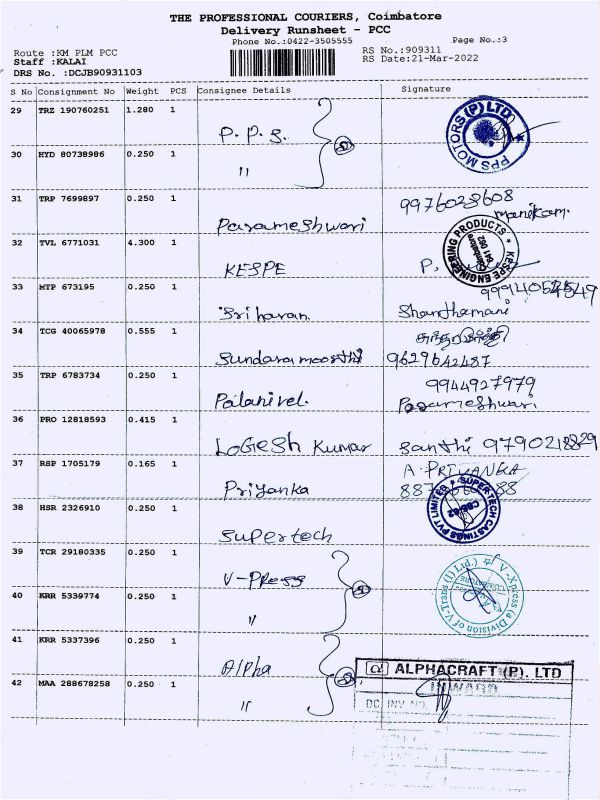 THE PROFESSIONAL COURIERS, Coimbatore
Delivery Runsheet - PCC
Phone No.:0422-3505555
Page No.:3
Route :KM PLM PCC
RS No.:909311
Staff :KALAI
RS Date:21-Mar-2022
DRS No. :DCJB90931103
S No Consignment No Weight PCS Consignee Details Signature
29 TRZ 190760251 1.280 1
P.P.S.
PPS MOTORS (P) LTD
30 HYD 80738986 0.250 1
"
31 TRP 7699897 0.250 1
Parameshwari
9976028608
manikam.
32 TVL 6771031 4.300 1
KESPE
P.
KESPE ENGINEERING PRODUCTS
Coimbatore
641 062
33 MTP 673195 0.250 1
Sri haran.
Shanthamani
34 TCG 40065978 0.555 1
Sundaramoorthi
9629642487
35 TRP 6783734 0.250 1
Palanivel.
9944927979
Parameshwari
36 PRO 12818593 0.415 1
LOGESH Kumar
Santhi
37 RSP 1705179 0.165 1
Priyanka
A. PRIYANKA
38 HSR 2326910 0.250 1
Supertech
SUPERTECH CASTINGS PVT LIMITED
CBE-62
39 TCR 29180335 0.250 1
V-Press
V-Xpress (a Division of V-Trans (I) Ltd.)
40 KRR 5339774 0.250 1
"
41 KRR 5337396 0.250 1
Alpha
ALPHACRAFT (P). LTD
INWARD
DC INV NO.
42 MAA 288678258 0.250 1
"